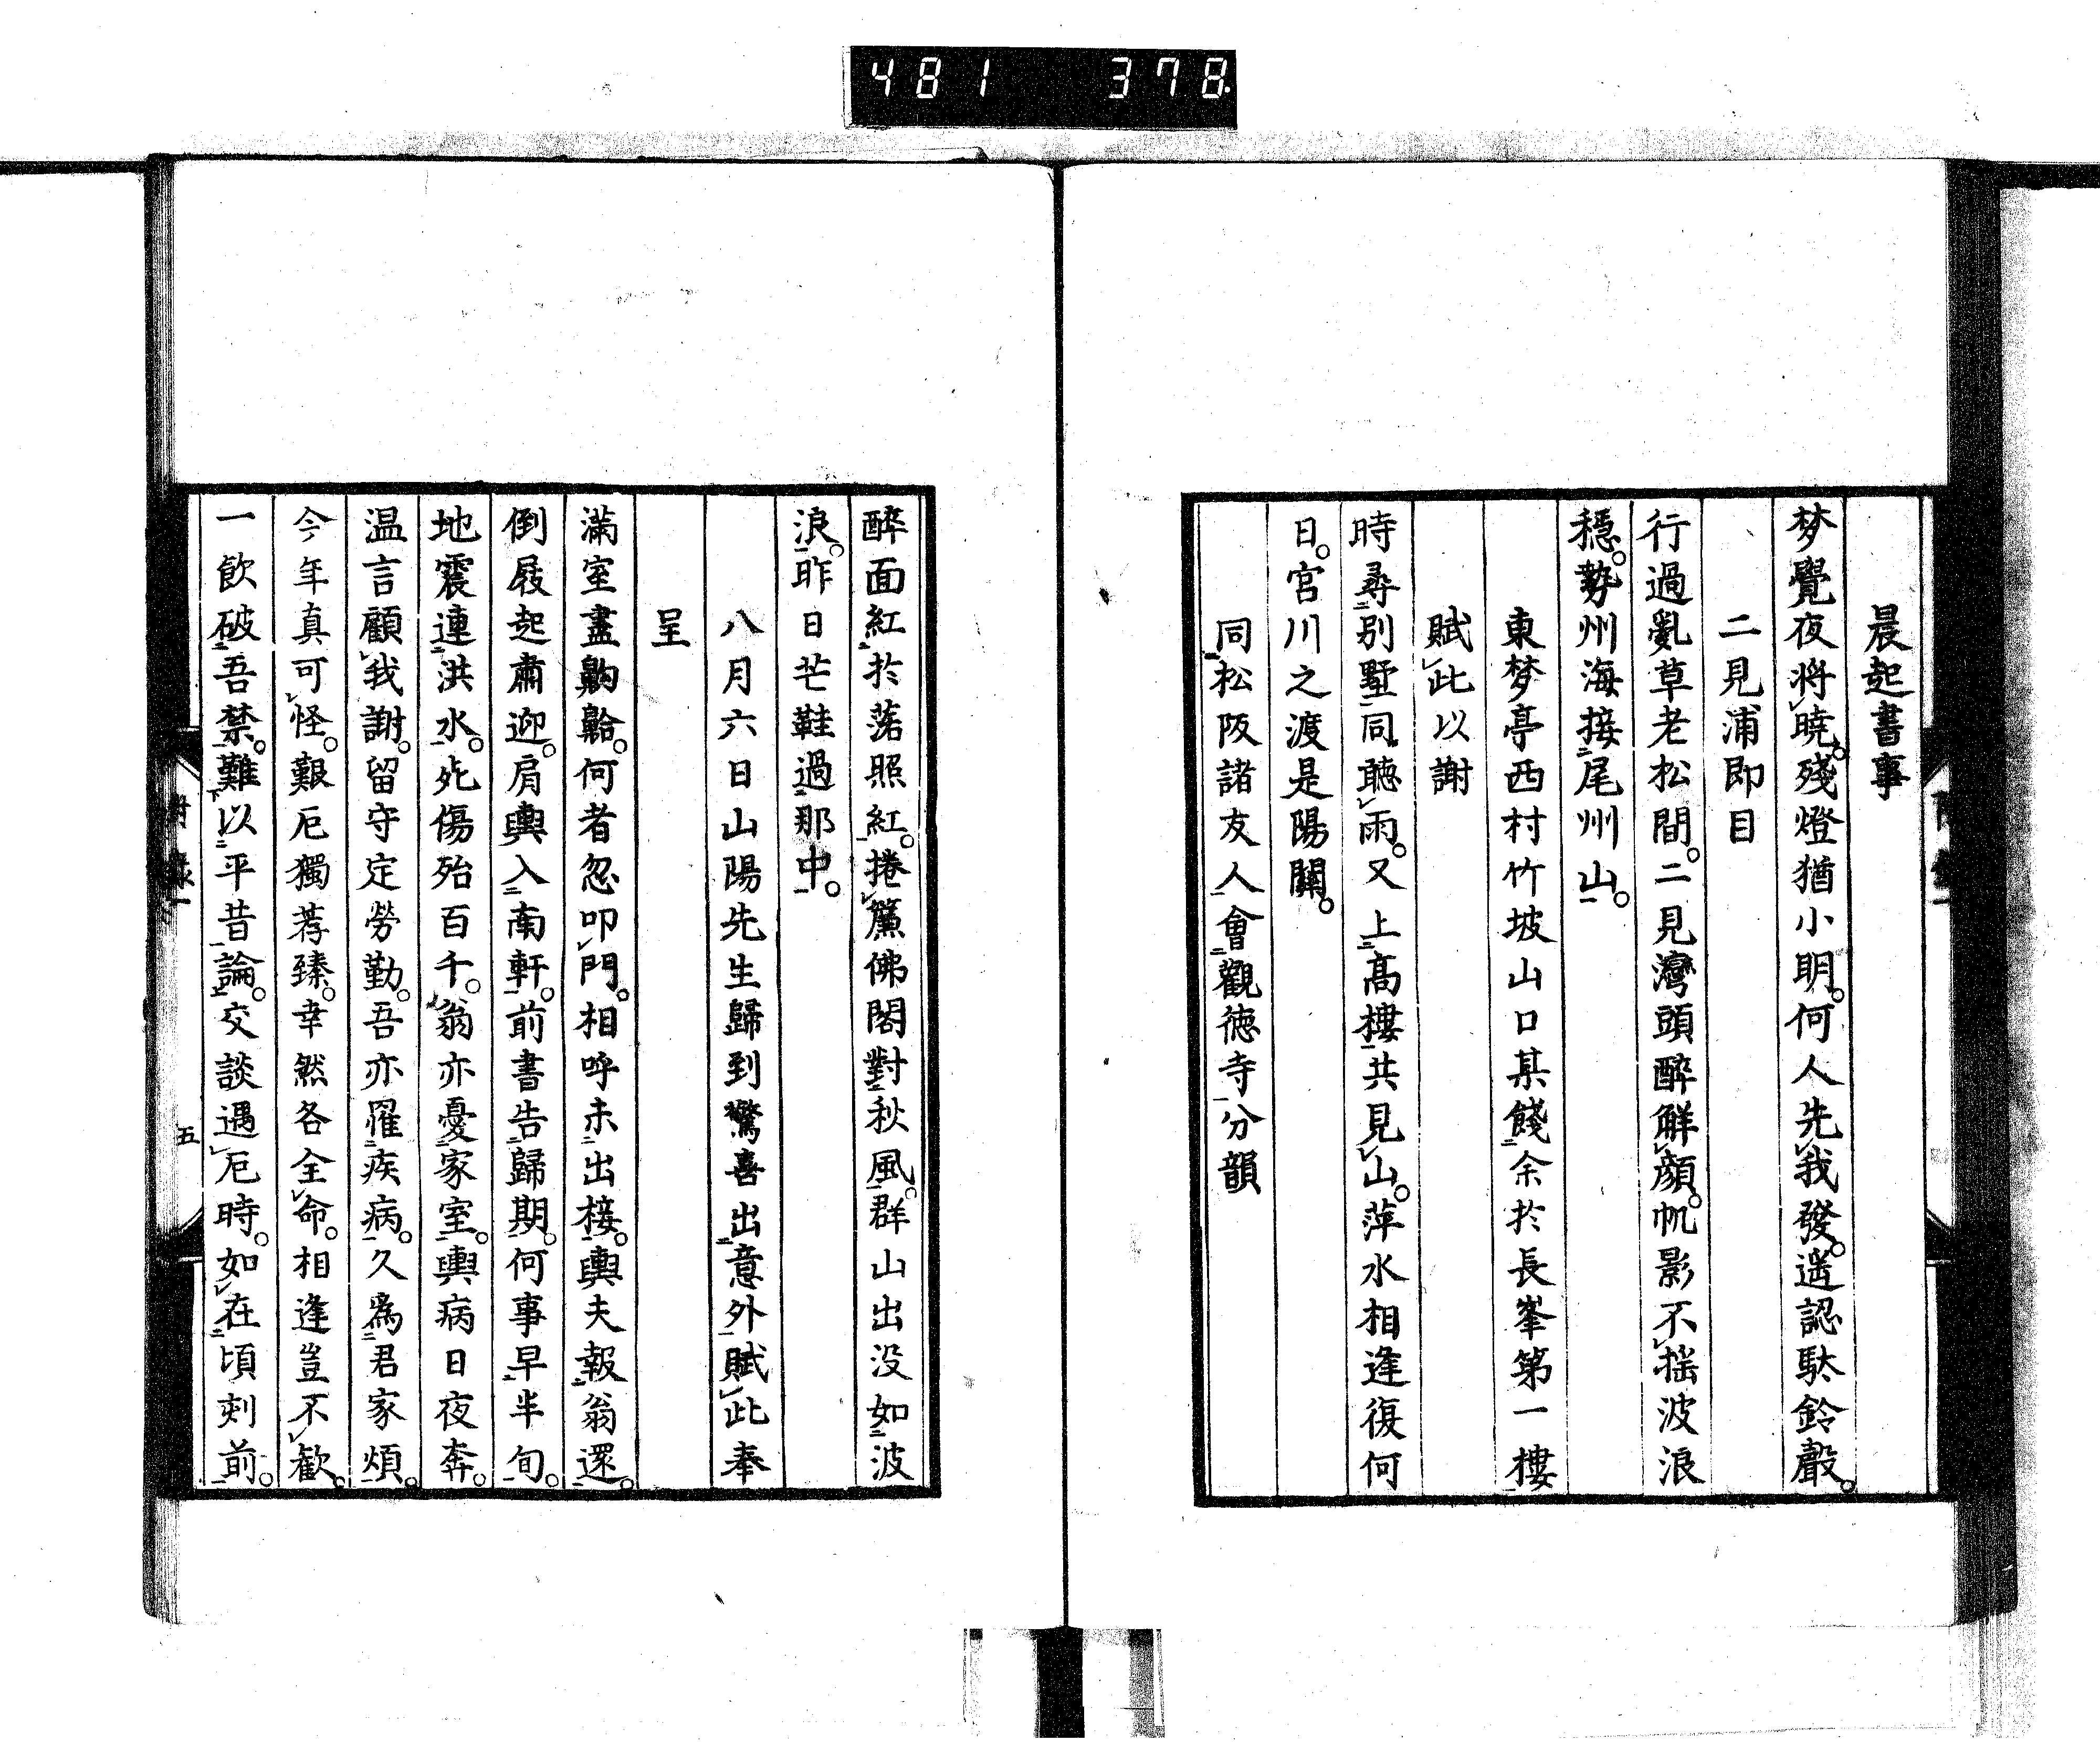 481 378
晨起書事
梦覺夜将曉。殘燈猶小明。何人先我發。遥認駄鈴聲。
二見浦即目
行過亂草老松間。二見灣頭醉解顔。帆影不揺波浪
穩。勢州海接尾州山。
東梦亭西村竹坡山口某餞余於長峯第一樓
賦此以謝
時尋別墅同聽雨。又上高樓共見山。萍水相逢復何
日。宮川之渡是陽關。
同松阪諸友人會觀德寺分韻
醉面紅於落照紅。捲簾佛閣對秋風。群山出没如波
浪。昨日芒鞋過那中。
八月六日山陽先生歸到驚喜出意外賦此奉
呈
滿室盡齁齁。何者忽叩門。相呼未出接。輿夫報翁還。
倒屐起肅迎。肩輿入南軒。前書告歸期。何事早半旬。
地震連洪水。死傷殆百千。翁亦憂家室。輿病日夜奔。
温言顧我謝。留守定勞勤。吾亦罹疾病。久爲君家煩。
今年真可怪。艱厄獨荐臻。幸然各全命。相逢豈不歡。
一飲破吾禁。難以平昔論。交談遇厄時。如在頃刻前。
附錄一
五